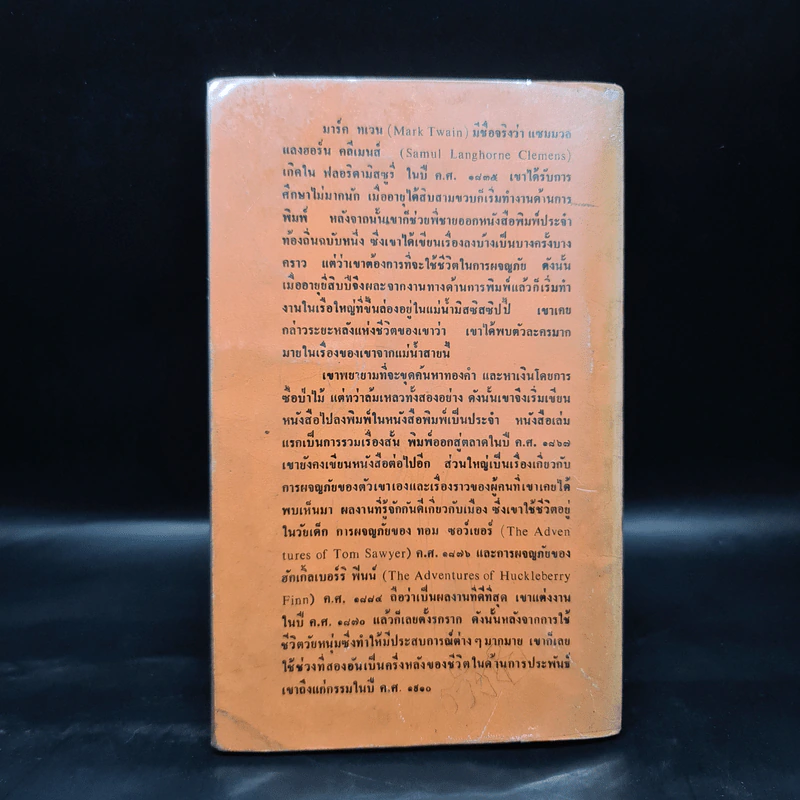 มาร์ค ทเวน (Mark Twain) มีชื่อจริงว่า แซมมวล
แลงฮอร์น คลีเมนส์ (Samul Langhorne Clemens)
เกิดใน ฟลอริดามิสซูรี่ ในปี ค.ศ. ๑๘๓๕ เขาได้รับการ
ศึกษาไม่มากนัก เมื่ออายุได้สิบสามขวบก็เริ่มทำงานด้านการ
พิมพ์ หลังจากนั้นเขาก็ช่วยพี่ชายออกหนังสือพิมพ์ประจำ
ท้องถิ่นฉบับหนึ่ง ซึ่งเขาได้เขียนเรื่องลงบ้างเป็นบางครั้งบาง
คราว แต่ว่าเขาต้องการที่จะใช้ชีวิตในการผจญภัย ดังนั้น
เมื่ออายุยี่สิบปีจึงผละจากงานทางด้านการพิมพ์แล้วก็เริ่มทำ
งานในเรือใหญ่ที่ขึ้นล่องอยู่ในแม่น้ำมิสซิสซิปปี้ เขาเคย
กล่าวระยะหลังแห่งชีวิตของเขาว่า เขาได้พบตัวละครมาก
มายในเรื่องของเขาจากแม่น้ำสายนี้
เขาพยายามที่จะขุดค้นหาทองคำ และหาเงินโดยการ
ซื้อป่าไม้ แต่ทว่าล้มเหลวทั้งสองอย่าง ดังนั้นเขาจึงเริ่มเขียน
หนังสือไปลงพิมพ์ในหนังสือพิมพ์เป็นประจำ หนังสือเล่ม
แรกเป็นการรวมเรื่องสั้น พิมพ์ออกสู่ตลาดในปี ค.ศ. ๑๘๖๗
เขายังคงเขียนหนังสือต่อไปอีก ส่วนใหญ่เป็นเรื่องเกี่ยวกับ
การผจญภัยของตัวเขาเองและเรื่องราวของผู้คนที่เขาเคยได้
พบเห็นมา ผลงานที่รู้จักกันดีเกี่ยวกับเมือง ซึ่งเขาใช้ชีวิตอยู่
ในวัยเด็ก การผจญภัยของ ทอม ซอร์เยอร์ (The Adven
tures of Tom Sawyer) ค.ศ. ๑๘๗๖ และการผจญภัยของ
ฮักเกิ้ลเบอร์รี่ ฟีนน์ (The Adventures of Huckleberry
Finn) ค.ศ. ๑๘๘๔ ถือว่าเป็นผลงานที่ดีที่สุด เขาแต่งงาน
ในปี ค.ศ. ๑๘๗๐ แล้วก็เลยตั้งรกราก ดังนั้นหลังจากการใช้
ชีวิตวัยหนุ่มซึ่งทำให้มีประสบการณ์ต่างๆ มากมาย เขาก็เลย
ใช้ช่วงที่สองอันเป็นครึ่งหลังของชีวิตในด้านการประพันธ์
เขาถึงแก่กรรมในปี ค.ศ. ๑๙๑๐